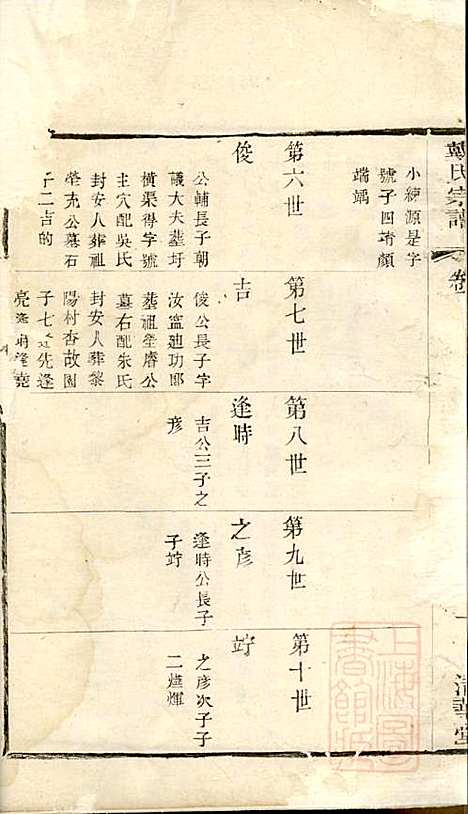 戴氏宗譜
卷
清華堂
上海圖書館藏
小練源是字
號子四靖顏
端竬
第六世
俊
公輔長子朝
議大夫塟圩
橫渠得字號
主穴配吳氏
封安人葬祖
塋充公墓石
子二吉的
第七世
吉
俊公長子字
汝寍廸功郎
塟祖塋膺公
墓右配朱氏
封安人葬黎
陽村香故園
子七逢先逢
亮逢時逢堯
第八世
逢時
吉公三子之
彥
第九世
之彥
逢時公長子
子竚
第十世
竚
之彥次子子
二煒輝